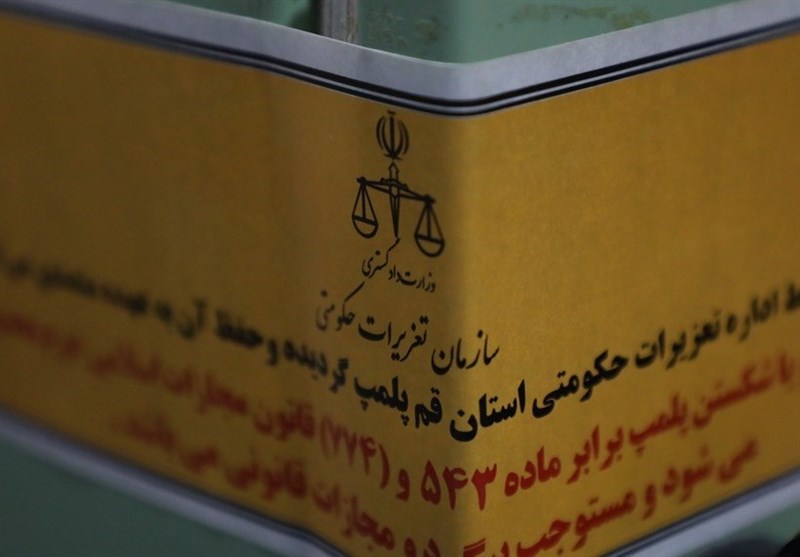 وزارت دادگستری
سازمان تعزیرات حکومتی
ط اداره تعزیرات حکومتی استان قم پلمپ گردیده و حفظ آن به عهده متصدی می
با شکستن پلمپ برابر ماده ۵۴۳ و (۷۷۴) قانون مجازات اسلامی
می شود و مستوجب پیگرد و مجازات قانونی می باشد.